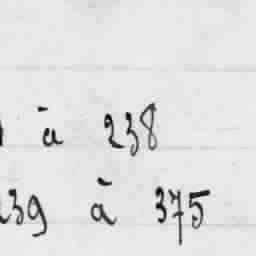 à 238
239 à 375